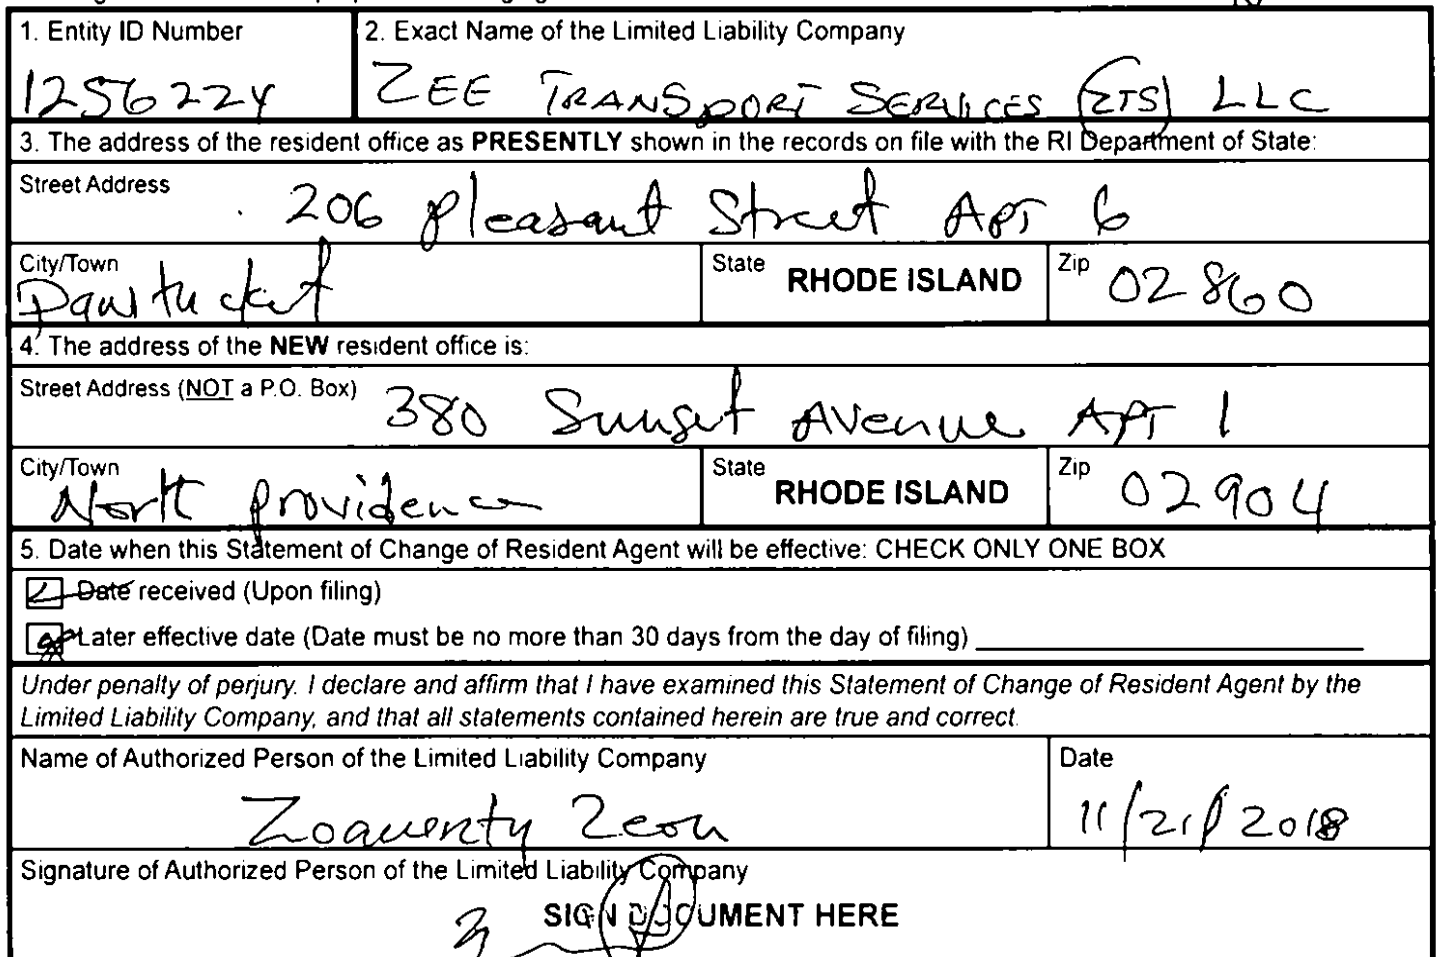 1. Entity ID Number
1256224
2. Exact Name of the Limited Liability Company
ZEE TRANSPORT SERVICES (ZTS) LLC
3. The address of the resident office as PRESENTLY shown in the records on file with the RI Department of State:
Street Address
206 Pleasant Street APT 6
City/Town
Pawtucket
State RHODE ISLAND
Zip 02860
4. The address of the NEW resident office is:
Street Address (NOT a P.O. Box) 380 Sunset Avenue APT 1
City/Town
North Providence
State RHODE ISLAND
Zip 02904
5. Date when this Statement of Change of Resident Agent will be effective: CHECK ONLY ONE BOX
Date received (Upon filing)
Later effective date (Date must be no more than 30 days from the day of filing)
Under penalty of perjury. I declare and affirm that I have examined this Statement of Change of Resident Agent by the
Limited Liability Company, and that all statements contained herein are true and correct.
Name of Authorized Person of the Limited Liability Company
Zoquenty Zeon
Date
11/21/2018
Signature of Authorized Person of the Limited Liability Company
SIGN DOCUMENT HERE